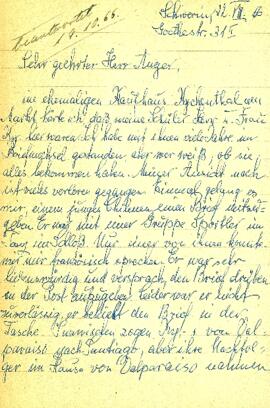 beantwortet
19.10.66.
Schwerin, 22. VIII. 66
Goethestr. 31 I
Sehr geehrter Herr Anger,
im ehemaligen Kaufhaus Kychenthal am
Markt hörte ich, daß meine Schüler Herr u. Frau
Ky. hier waren. Ich habe mit ihnen viele Jahre im
Briefwechsel gestanden, aber wer weiß, ob sie
alles bekommen haben. Meiner Ansicht nach
ist vieles verloren gegangen. Einmal gelang es
mir, einem jungen Chilenen einen Brief mitzu-
geben. Er war mit einer Gruppe Sportler im
Schloß. Nur einer von ihnen konnte
nur französisch sprechen. Er war sehr
liebenswürdig und versprach, den Brief drüben
in der Post aufzugeben. Leider war er nicht
zuverlässig, er behielt den Brief in der
Tasche. Inzwischen zogen Ky's von Val-
paraiso nach Santiago, aber ihre Nachfol-
ger im Hause von Valparaiso nahmen